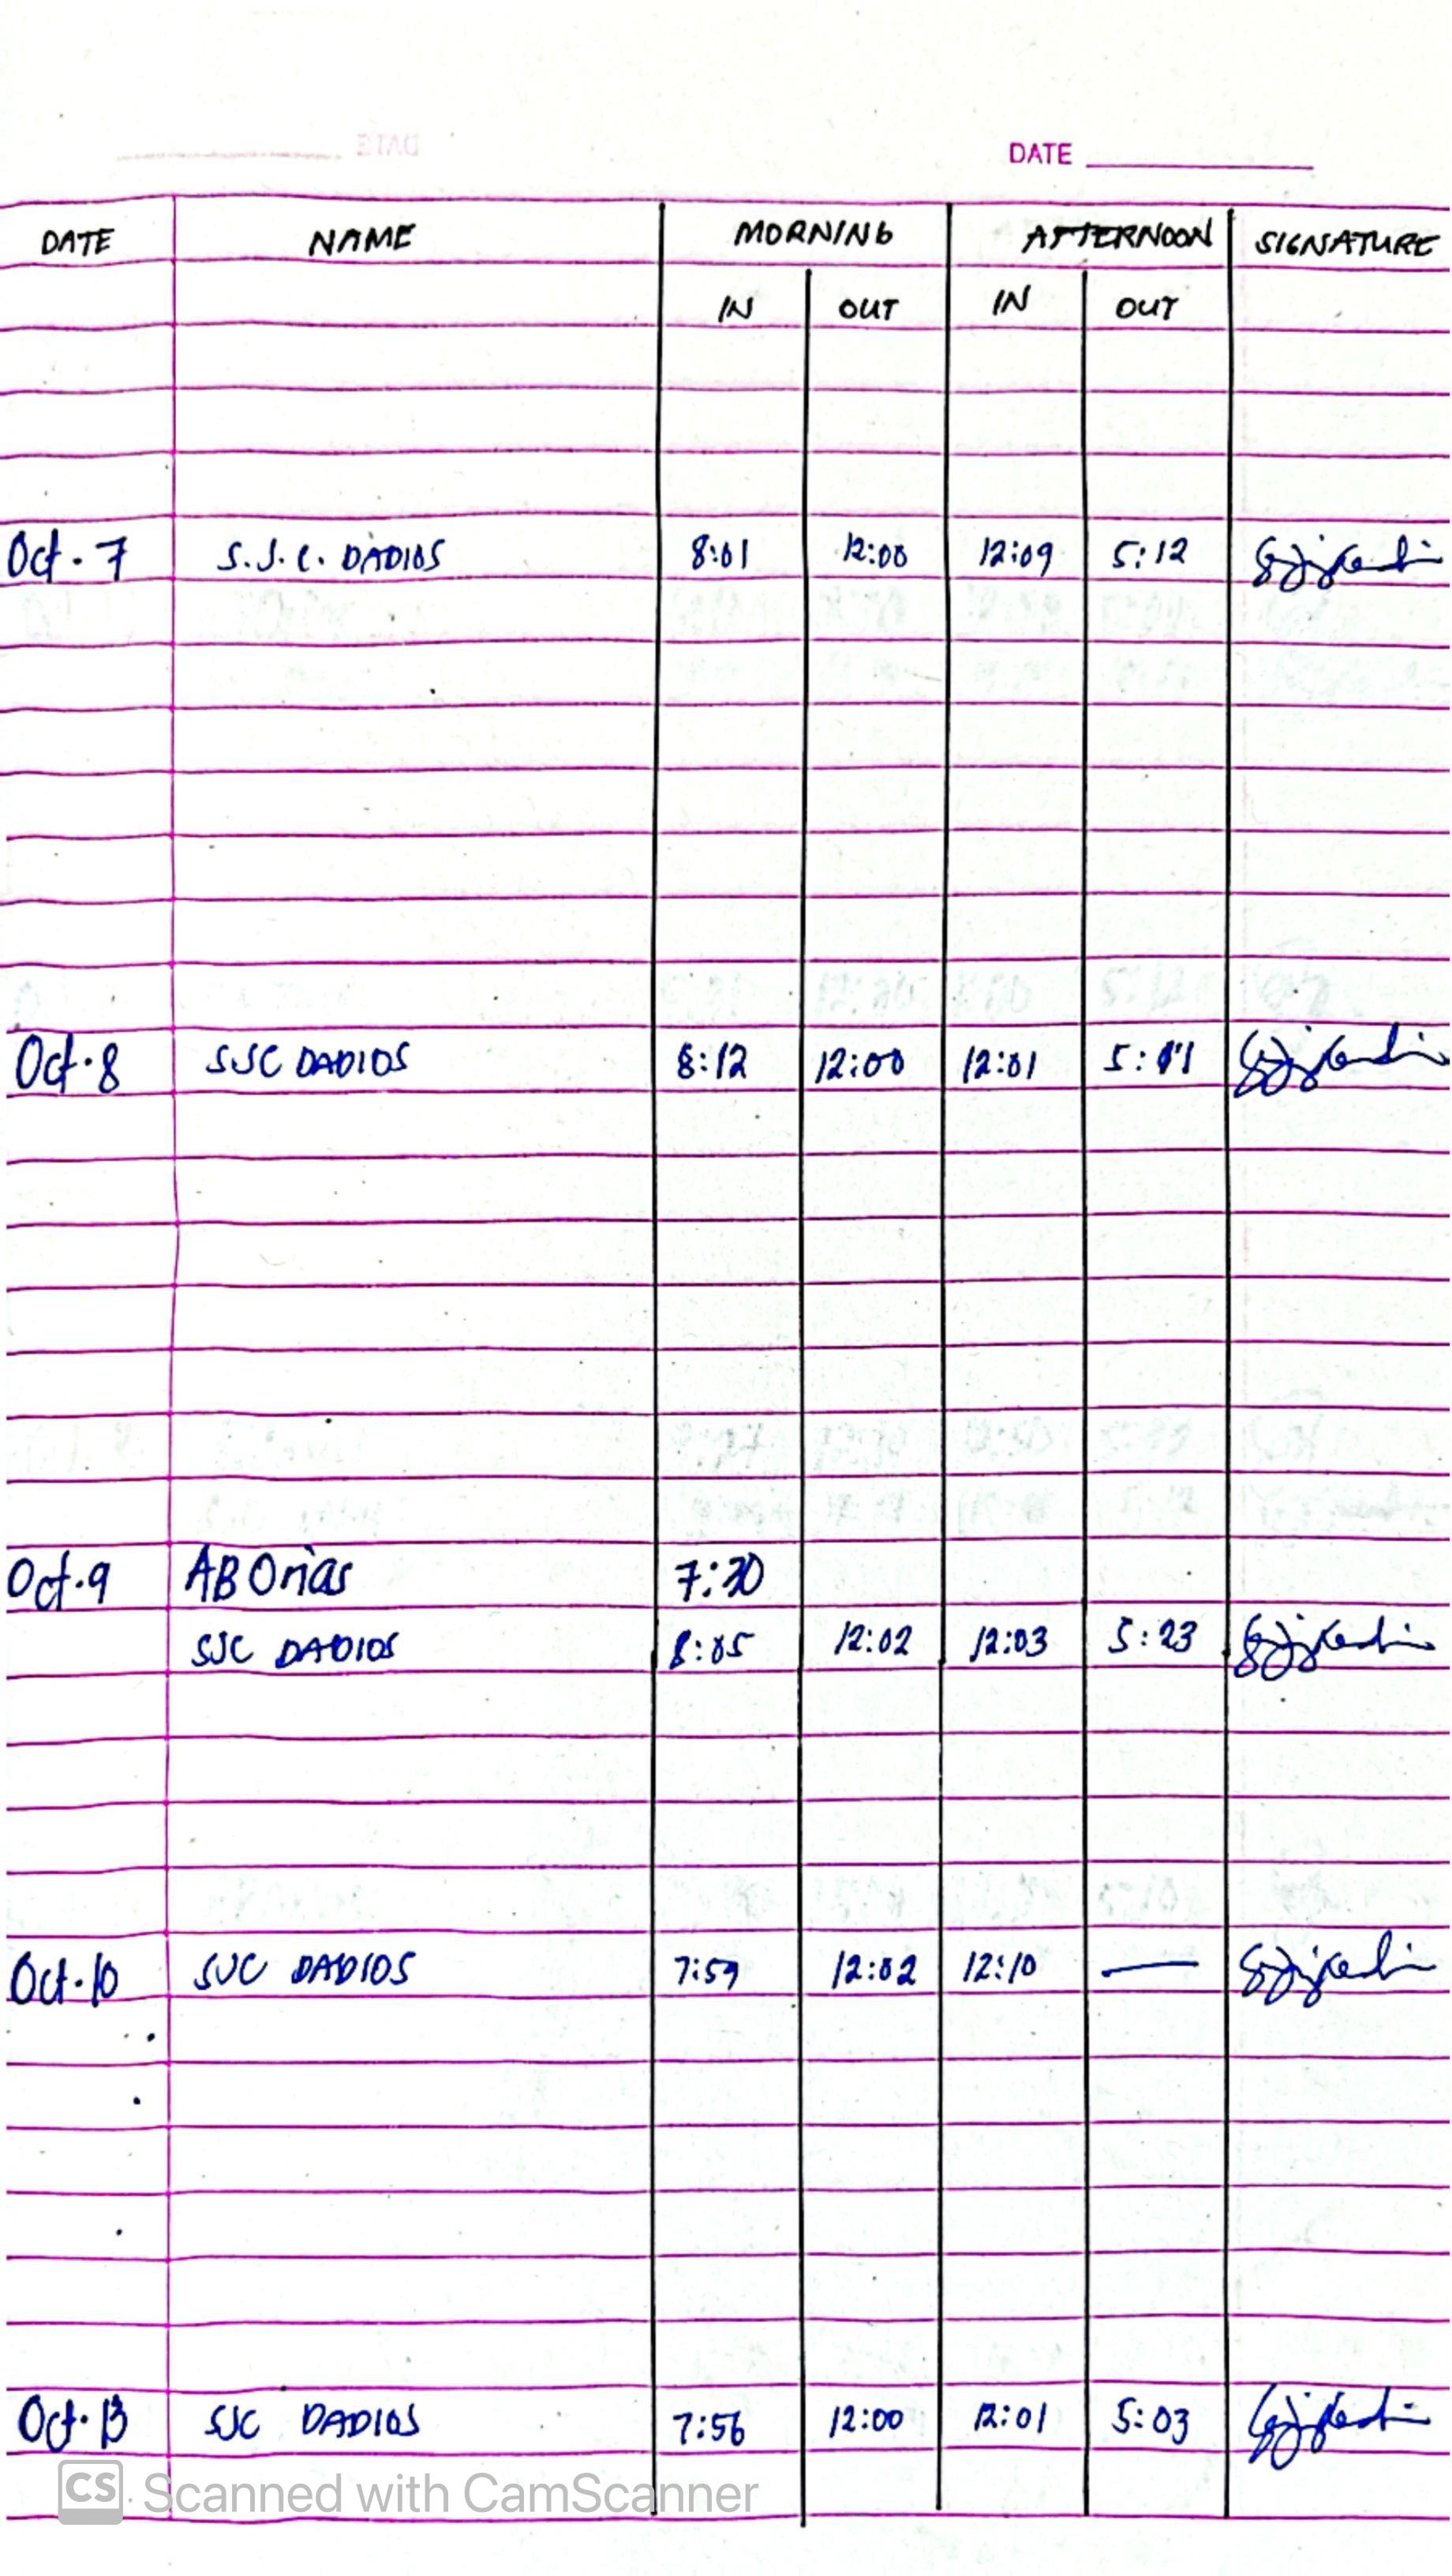 DATE
DATE NAME MORNING AFTERNOON SIGNATURE
IN OUT IN OUT
Oct. 7 S.J.C. DADIOS 8:01 12:00 12:09 5:12
Oct. 8 SJC DADIOS 8:12 12:00 12:01 5:11
Oct. 9 AB Orias 7:30
SJC DADIOS 8:05 12:02 12:03 5:23
Oct. 10 SJC DADIOS 7:59 12:02 12:10 —
Oct. 13 SJC DADIOS 7:56 12:00 12:01 5:03
CS Scanned with CamScanner